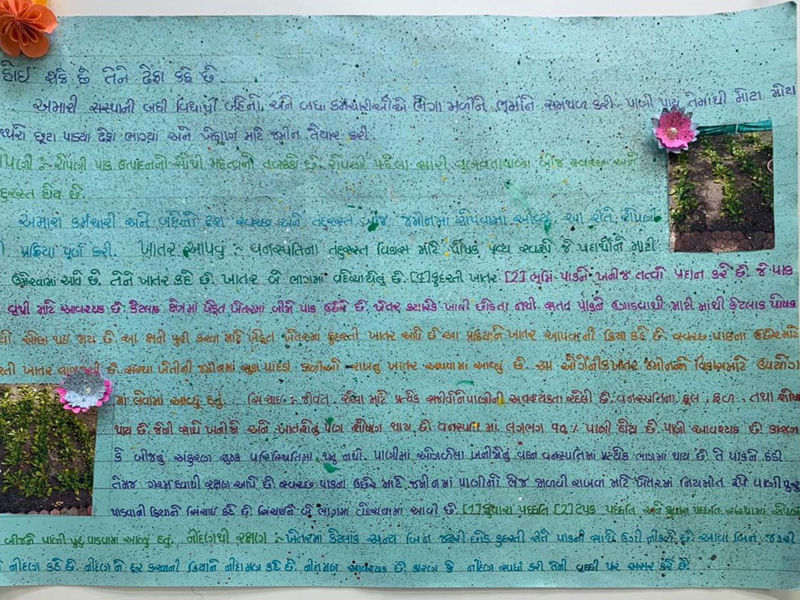 હોઈ શકે છે તેને ઢેફા કહે છે.
અમારી સંસ્થાની બધી વિદ્યાર્થી બહેનો અને બધા કર્મચારીઓએ ભેગા મળીને ભૂમિને સમથળ કરી. પાણી પાયુ તેમાંથી મોટા મોટા
છૂટા પાડયા ઢેફા ભાગ્યાં અને બિયારણ માટે જમીન તૈયાર કરી.
રોપણી :- રોપણી પાક ઉત્પાદનનો સૌથી મહત્વનો તબક્કો છે. રોપણી પહેલા સારી ગુણવત્તાવાળા બીજ સ્વચ્છ અને
તંદુરસ્ત હોય છે.
અમારા કર્મચારી અને બહેનો દ્વારા સ્વચ્છ અને તંદુરસ્ત બીજ જમીનમાં રોપવામાં આવ્યું. આ રીતે રોપણી
ની પ્રક્રિયા પૂર્ણ કરી. ખાતર આપવુ :- વનસ્પતિના તંદુરસ્ત વિકાસ માટે પોષક દ્રવ્ય સ્વરૂપે જે પદાર્થોને માટી
ઉમેરવામાં આવે છે. તેને ખાતર કહે છે. ખાતર બે ભાગમાં વહેંચાયેલું છે. [1] કુદરતી ખાતર [2] ભૂમિ પાકને ખનીજ તત્વો પ્રદાન કરે છે. જે પાક
વૃધ્ધી માટે આવશ્યક છે. કેટલાક ક્ષેત્રમાં ખેડૂત ખેતરમાં બીજો પાક ઉછેરે છે. ખેતર ક્યારેક ખાલી છોડતા નથી. સતત પાકને ઉગાડવાથી માટી માંથી કેટલાક પોષક
ઓછા થઇ જાય છે. આ ક્ષતી પૂરી કરવા માટે ખેડૂત ખેતરમાં કુદરતી ખાતર આપે છે આ પ્રક્રિયાને ખાતર આપવાની ક્રિયા કહે છે. સ્વચ્છ પાકના ઉછેર માટે
ખાતર છે. સંસ્થા ખેતીની જમીનમાં સુકા પાંદડા, રાખનું ખાતર આપવામાં આવ્યું છે. આ ઓર્ગેનીક ખાતર જમીનના વિકાસ માટે ઉપયોગ
મા લેવામાં આવ્યું હતું. સિંચાઇ :- જીવંત રહેવા માટે પ્રત્યેક સજીવોને પાણીની આવશ્યકતા રહેલી છે. વનસ્પતિના ફૂલ, ફળ, તથા
થાય છે. જેની સાથે ખનીજો અને ખાતરોનું પણ શોષણ થાય છે વનસ્પતિ માં લગભગ ૯૦% પાણી હોય છે. પાણી આવશ્યક છે કારણ
કે બીજનું અંકુરણ શુષ્ક પરિસ્થિતિમાં થતુ નથી. પાણીમાં ઓગળેલા ખનીજોનું વહન વનસ્પતિમાં પ્રત્યેક ભાગમાં થાય છે. તે પાકને ઠંડી
તેમજ ગરમ હવાથી રક્ષણ આપે છે સ્વચ્છ પાકના ઉછેર માટે જમીનમાં પાણીનો ભેજ જાળવી રાખવા માટે ખેતરમાં નિયમીત રૂપે પાણી પુરુ
પાડવાની ક્રિયાને સિંચાઇ કહે છે. સિંચાઇને બે ભાગમાં વહેંચવામાં આવી છે. [1] ફુવારા પધ્ધતિ [2] ટપક પધ્ધતિ અને ફુવારા પધ્ધતિ સંસ્થામાં
બીજને પાણી પુરુ પાડવામાં આવ્યું હતું. નીંદણથી રક્ષણ :- ખેતરમાં કેટલાક અન્ય બિન જરૂરી છોડ કુદરતી રીતે પાકની સાથે ઉગી નીકળે છે. આવા બિન જરૂરી
નીંદણ કહે છે. નીંદણને દૂર કરવાની ક્રિયાને નીંદામણ કહે છે. નીંદામણ આવશ્યક છે કારણ કે નીંદણ સ્પર્ધા કરી તેની વૃધ્ધી પર અસર કરે છે.